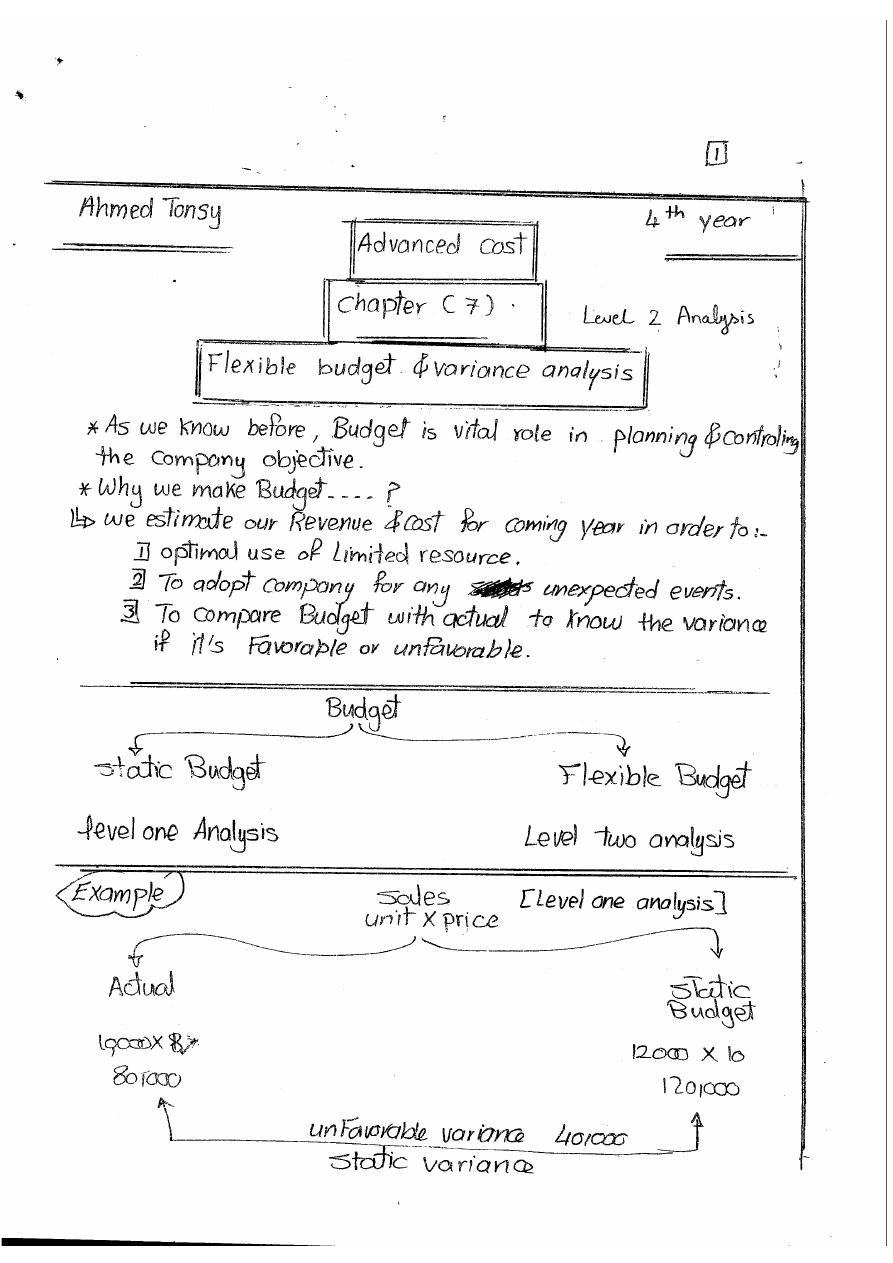 1
Ahmed Tonsy
4th year
Advanced cost
Chapter (7)
Level 2 Analysis
Flexible budget & variance analysis
* As we know before, Budget is vital role in planning & controling
the company objective.
* Why we make Budget....?
↳ we estimate our Revenue & cost for coming year in order to:-
1 optimal use of Limited resource.
2 To adopt company for any unexpected events.
3 To compare Budget with actual to know the variance
if it's Favorable or unfavorable.
Budget
Static Budget
Flexible Budget
level one Analysis
Level two analysis
Example
Sales
[Level one analysis]
unit X price
Actual
Static
Budget
10,000 X 8
12,000 X 10
80,000
120,000
unfavorable variance 40,000
Static variance